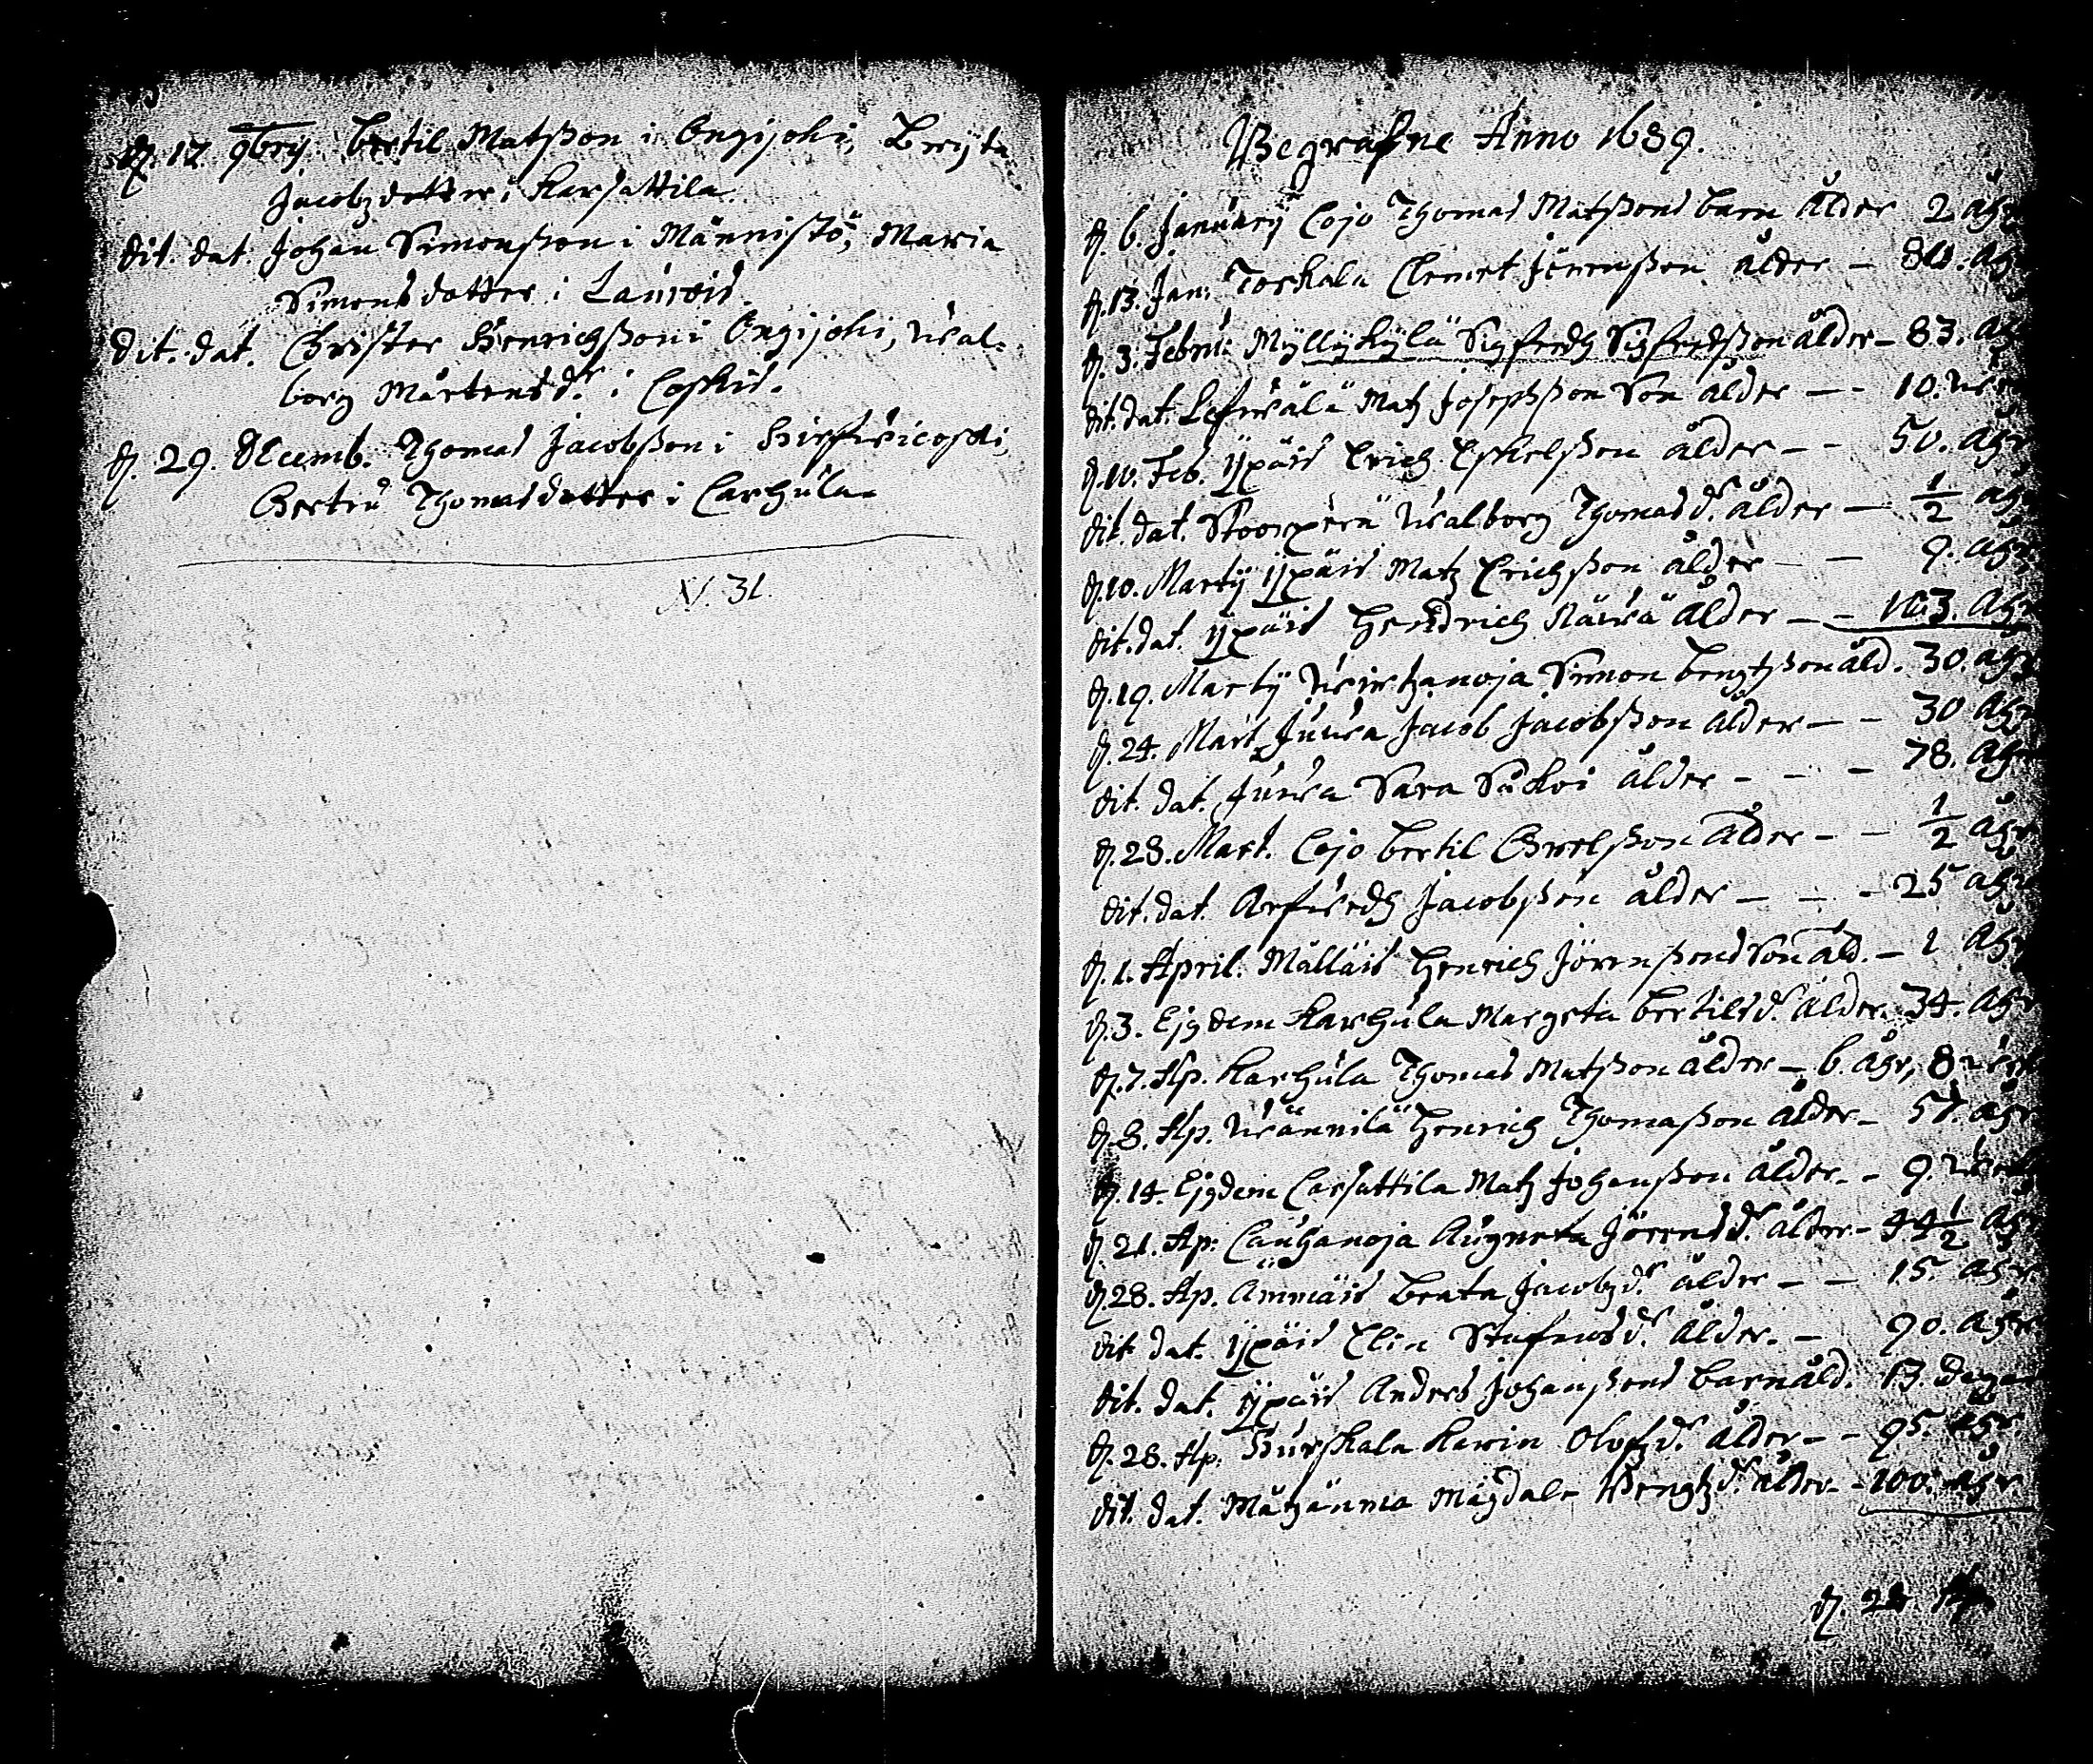 d. 17. 9brij. Bertil Matsson i Ongijoki, Brijta
Jacobzdotter i Karsattila.
dit. dat. Johan Simonsson i Männistö, Maria
Simonsdotter i Laurois.
dit. dat. Christer Henrichsson i Ongijoki, Wal-
borg Mårtensdr. i Coskis.
d. 29. Decemb. Thomas Jacobsson i
Gertru Thomasdotter i Carhula.
N. 31.
Begrafne Anno 1689.
d. 6. Januarij Cojo Thomas Matssons barn ålder 2 åhr
d. 13. Jan: Toskala Clemet Jörensson ålder — 80. åhr
d. 3. Febru: Myllykylä Sigfredh Sigfredsson ålder — 83. åhr
dit. dat. Matz Josephsson Son ålder — — 10.
d. 10. Feb. Ypäis Erich Eskelsson ålder — — 50. åhr
dit. dat. Walborg Thomasdr. ålder — ½ åhr
d. 10. Martij Ypäis Matz Erichsson ålder — — 9. åhr
dit. dat. Ypäis Hendrich ålder — — 103. åhr
d. 19. Martij Simon Bengtsson åld. 30. åhr
d. 24. Mart. Juusa Jacob Jacobsson ålder — — 30 åhr
dit. dat. Juusa Sara ålder — — — 78. åhr
d. 28. Mart. Cojo Bertil Grelsson ålder — — ½ åhr
dit. dat. Arfwedh Jacobsson ålder — — — 25 åhr
d. 1. April. Mälläis Henrich Jörenssons Son åld. — 1 åhr
d. 3. Ejgdem Karhula Margeta Bertilsdr. ålder. 34. åhr
d. 7. Ap. Karhula Thomas Matsson ålder — 6. åhr, 8
d. 8. Ap. Wännilä Henrich Thomasson ålder — 57. åhr
d. 14. Ejgdem Carsattila Matz Johansson ålder. — 9.
d. 21. Ap: Cauhanoja Augneta Jörensdr. ålder — 44½ åhr
d. 28. Ap. Ämmäis Beata Jacobzdr. ålder — — 15. åhr
dit dat. Ypäis Elin Stafwsdr. ålder. — 90. åhr
dit. dat. Ypäis Anders Johanssons barn åld. 13. dagar
d. 28. Ap. Hurskala Karin Olofzdr. ålder — — 95. åhr.
dit. dat. Mågdale Bengtzdr. ålder — 100. åhr
d. 28. Ap